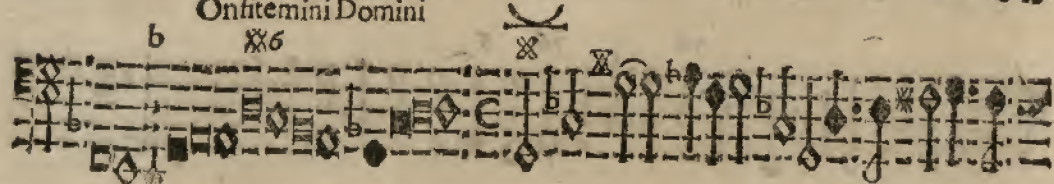 Onfitemini Domini
b 6